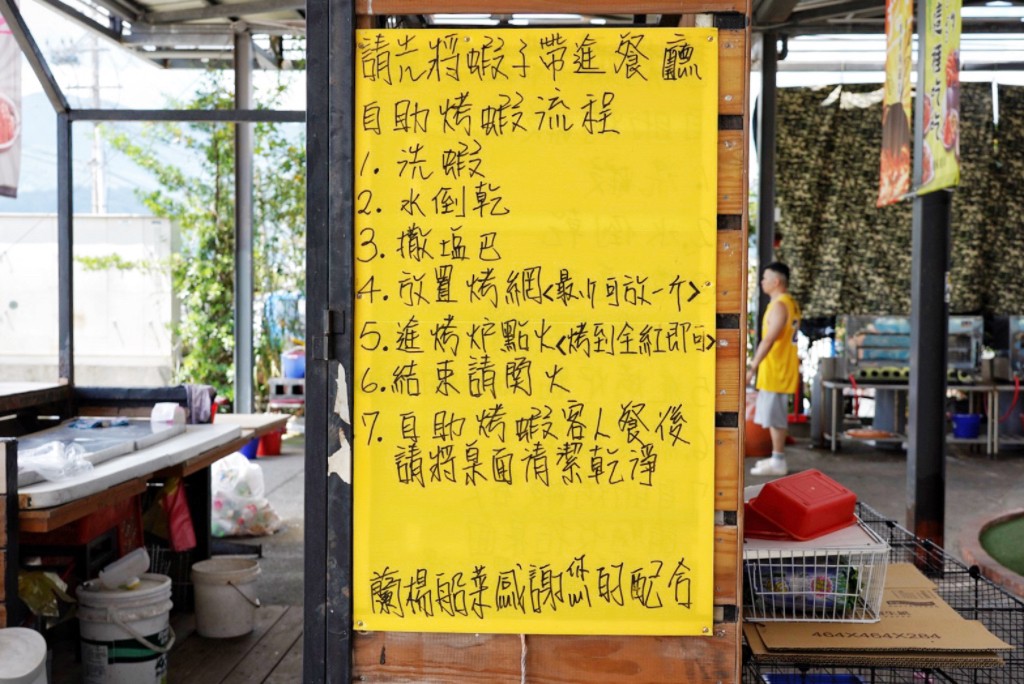 請先將蝦子帶進餐廳
自助烤蝦流程
1. 洗蝦
2. 水倒乾
3. 撒塩巴
4. 放置烤網<最少可放一斤>
5. 進烤炉點火<烤到全紅即可>
6. 結束請関火
7. 自助烤蝦客人餐後
請將桌面清潔乾淨
蘭楊船菜感謝您的配合
464X464X284